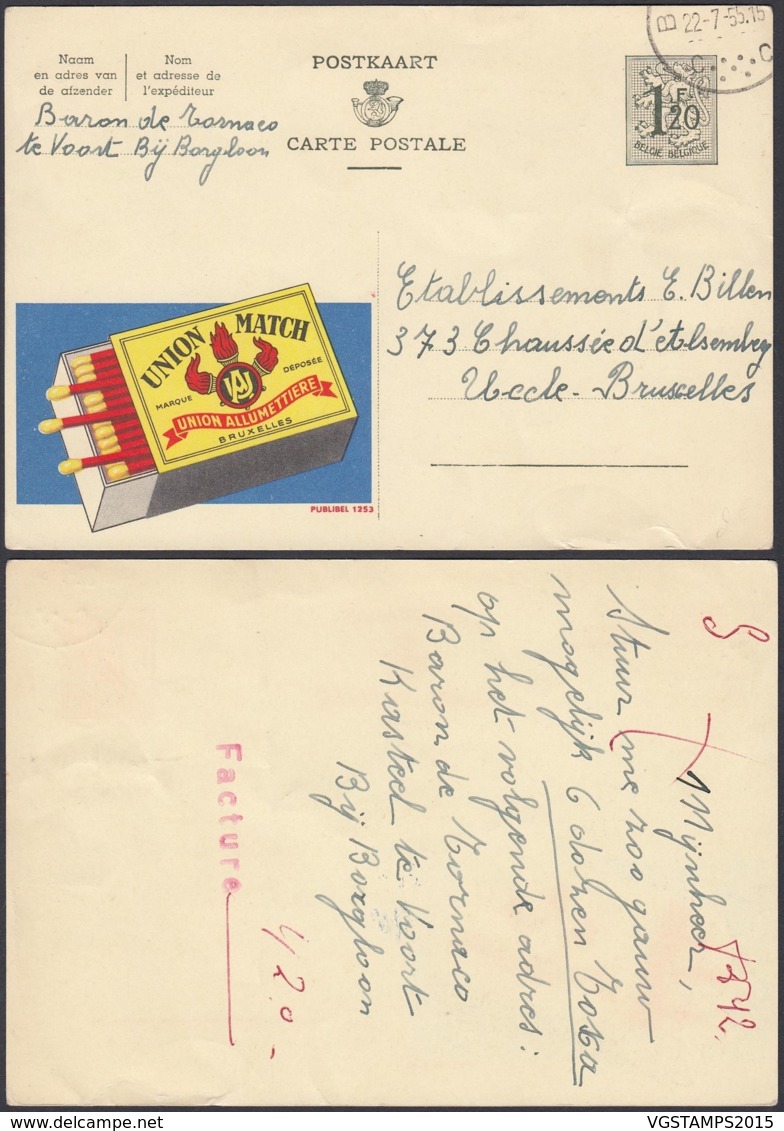 Naam
en adres van
de afzender
Nom
et adresse de
l'expéditeur
POSTKAART
CARTE POSTALE
B 22-7-55.15
1F20
BELGIE BELGIQUE
Baron de Tornaco
te Voort Bij Borgloon
Etablissements E. Billen
373 Chaussée d'Alsemberg
Uccle - Bruxelles
UNION MATCH
MARQUE DÉPOSÉE
UNION ALLUMETTIERE
BRUXELLES
PUBLIBEL 1253
Mijnheer,
Stuur me zoo gauw
mogelijk 6 dozen
op het volgende adres:
Baron de Tornaco
Kasteel te Voort
Bij Borgloon
Facture
420.-
VGSTAMPS2015